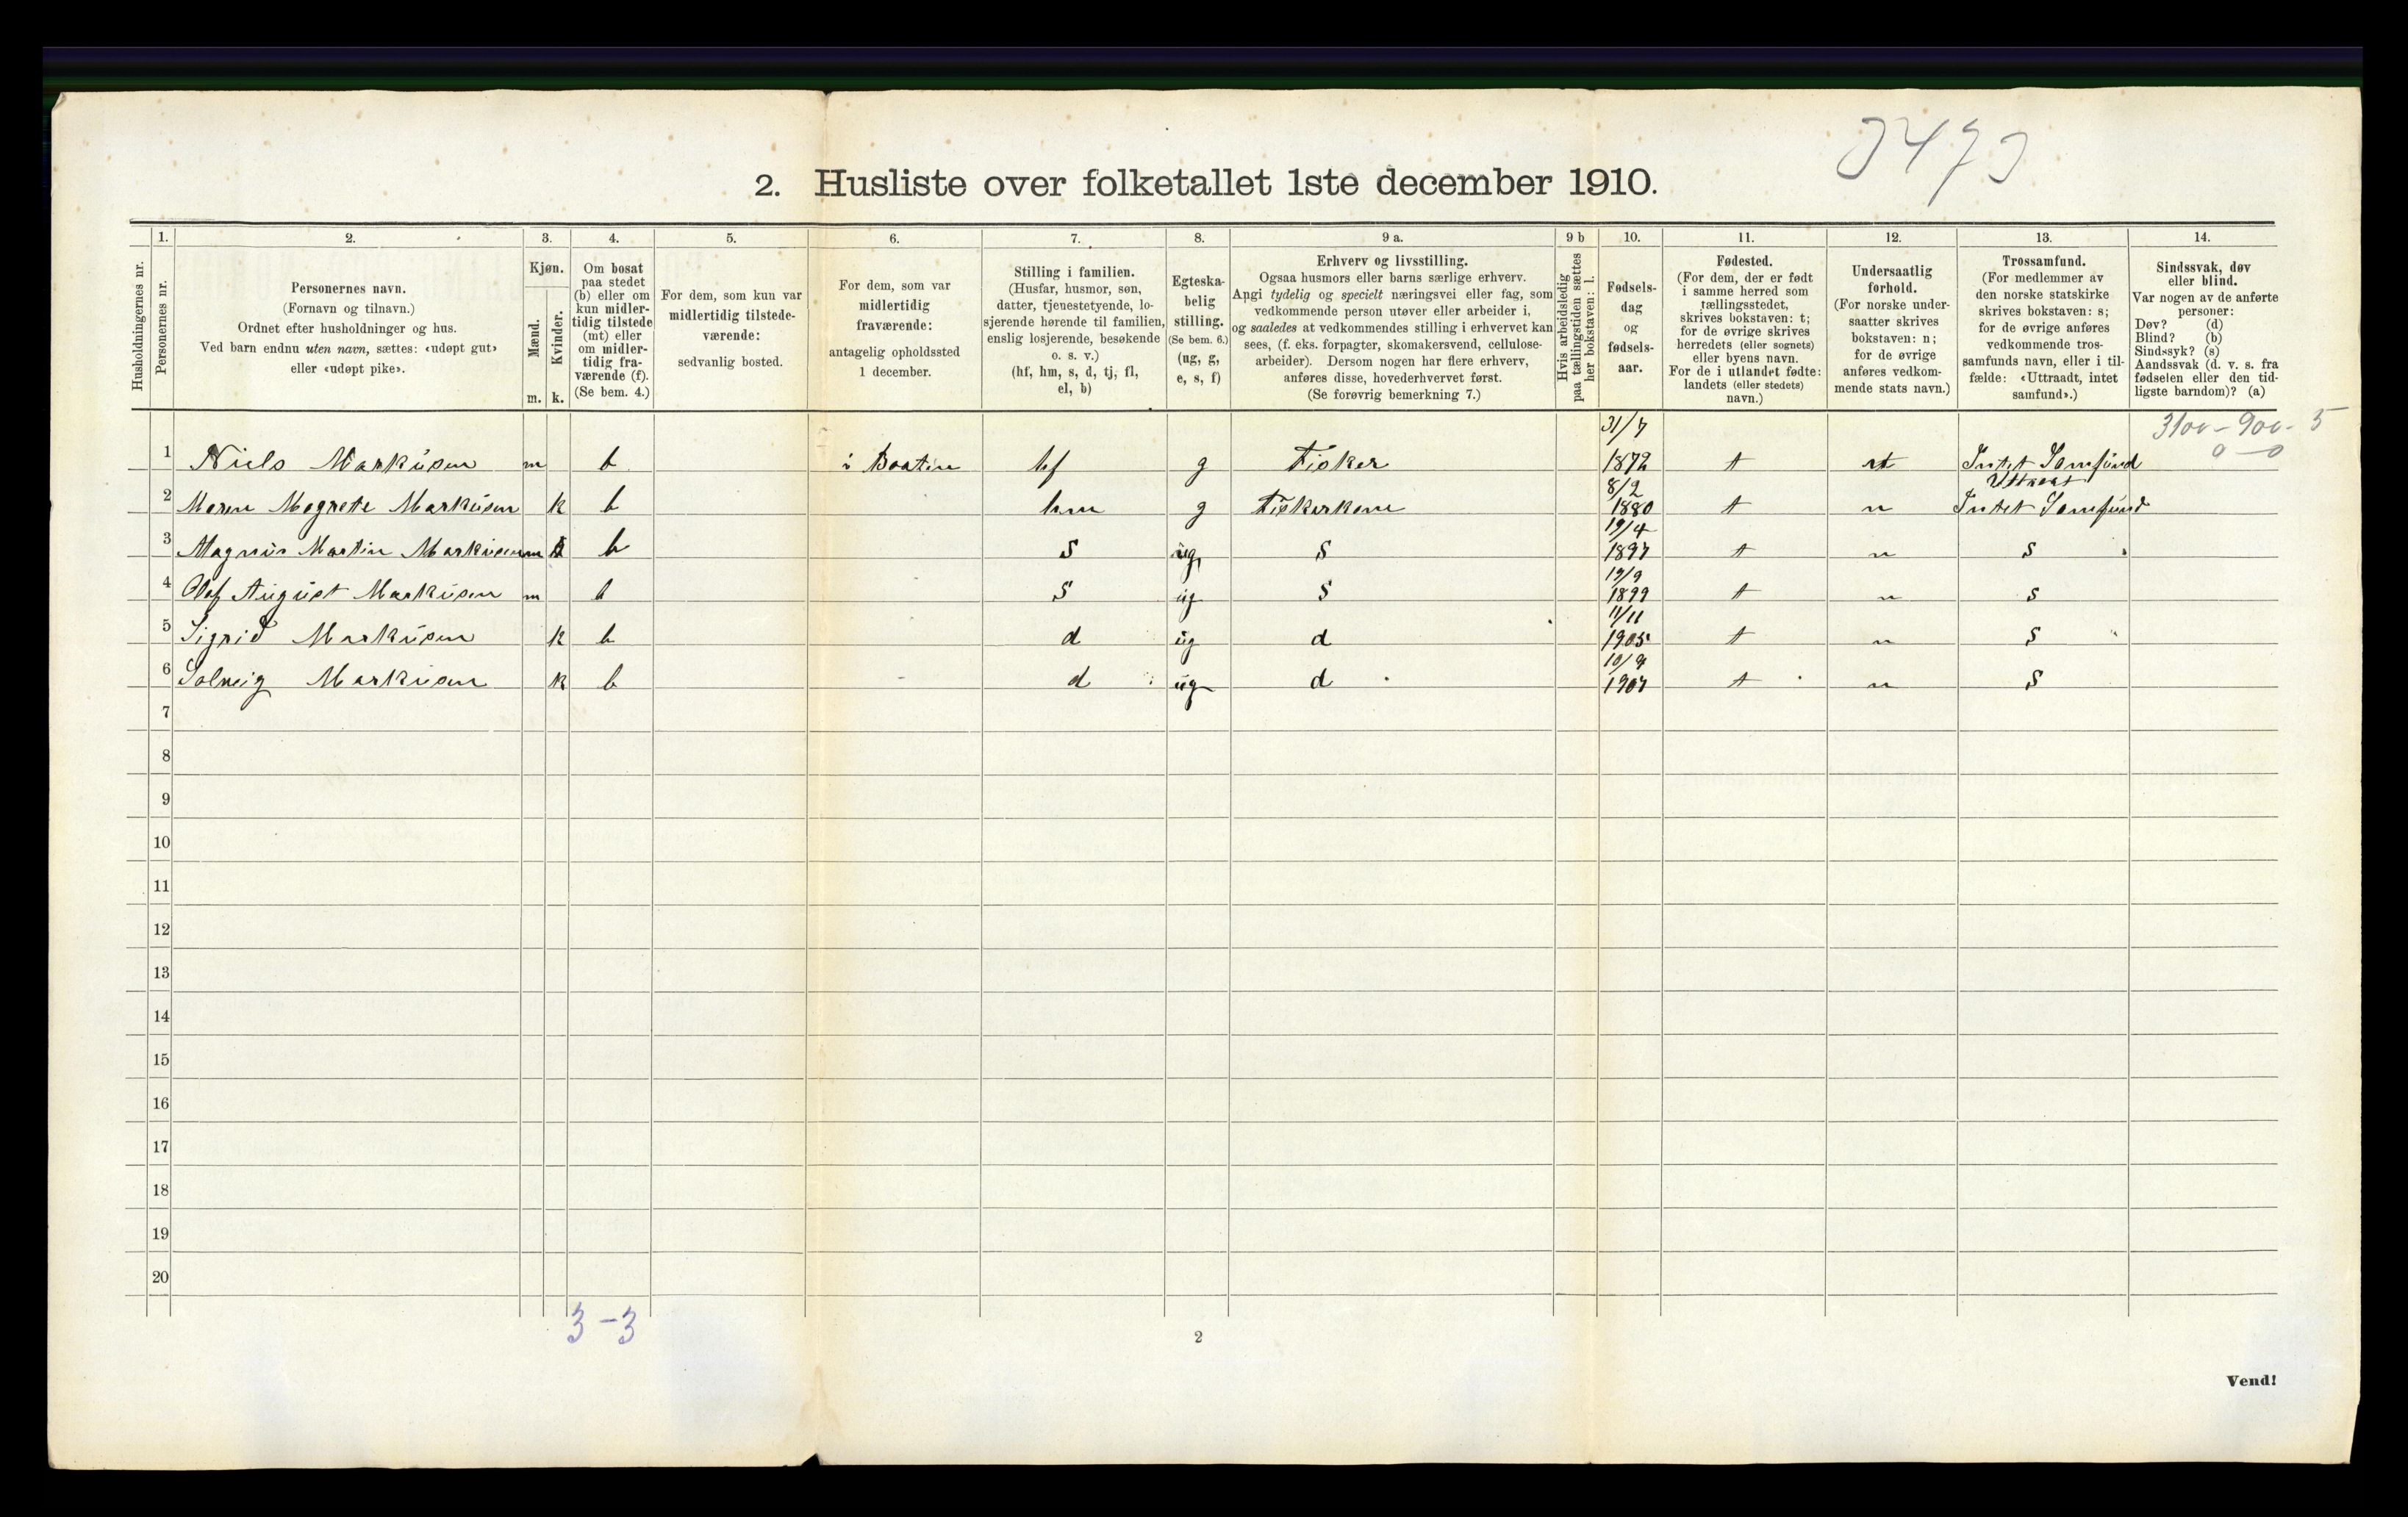 3473
2. Husliste over folketallet 1ste december 1910.
Husholdningernes nr.
1.
Personernes nr.
2.
Personernes navn.
(Fornavn og tilnavn.)
Ordnet efter husholdninger og hus.
Ved barn endnu uten navn, sættes: «udøpt gut»
eller «udøpt pike».
3.
Kjøn.
Mænd.
Kvinder.
m. k.
4.
Om bosat
paa stedet
(b) eller om
kun midler-
tidig tilstede
(mt) eller
om midler-
tidig fra-
værende (f).
(Se bem. 4.)
5.
For dem, som kun var
midlertidig tilstede-
værende:
sedvanlig bosted.
6.
For dem, som var
midlertidig
fraværende:
antagelig opholdssted
1 december.
7.
Stilling i familien.
(Husfar, husmor, søn,
datter, tjenestetyende, lo-
sjerende hørende til familien,
enslig losjerende, besøkende
o. s. v.)
(hf, hm, s, d, tj, fl,
el, b)
8.
Egteska-
belig
stilling.
(Se bem. 6.)
(ug, g,
e, s, f)
9 a.
Erhverv og livsstilling.
Ogsaa husmors eller barns særlige erhverv.
Angi tydelig og specielt næringsvei eller fag, som
vedkommende person utøver eller arbeider i,
og saaledes at vedkommendes stilling i erhvervet kan
sees, (f. eks. forpagter, skomakersvend, cellulose-
arbeider). Dersom nogen har flere erhverv,
anføres disse, hovederhvervet først.
(Se forøvrig bemerkning 7.)
9 b
Hvis arbeidsledig
paa tællingstiden sættes
her bokstaven: l.
10.
Fødsels-
dag
og
fødsels-
aar.
11.
Fødested.
(For dem, der er født
i samme herred som
tællingsstedet,
skrives bokstaven: t;
for de øvrige skrives
herredets (eller sognets)
eller byens navn.
For de i utlandet fødte:
landets (eller stedets)
navn.)
12.
Undersaatlig
forhold.
(For norske under-
saatter skrives
bokstaven: n;
for de øvrige
anføres vedkom-
mende stats navn.)
13.
Trossamfund.
(For medlemmer av
den norske statskirke
skrives bokstaven: s;
for de øvrige anføres
vedkommende tros-
samfunds navn, eller i til-
fælde: «Uttraadt, intet
samfund».)
14.
Sindssvak, døv
eller blind.
Var nogen av de anførte
personer:
Døv? (d)
Blind? (b)
Sindssyk? (s)
Aandssvak (d. v. s. fra
fødselen eller den tid-
ligste barndom)? (a)
3100 - 900 - 5
0 - 0
1 Niels Markusen m b i Baatin hf g Fisker 31/7 1872 t Intet Samfund
2 Maren Magrete Markusen k b hm g Fiskerkone 8/2 1880 t n Uttraat Intet Samfund
3 Magnus Martin Markusen m b s ug s 19/4 1897 t n s
4 Olaf August Markusen m b s ug s 19/9 1899 t n s
5 Sigrid Markusen k b d ug d 11/11 1905 t n s
6 Solveig Markusen k b d ug d 10/9 1907 t n s
7
8
9
10
11
12
13
14
15
16
17
18
19
20
3-3
2
Vend!